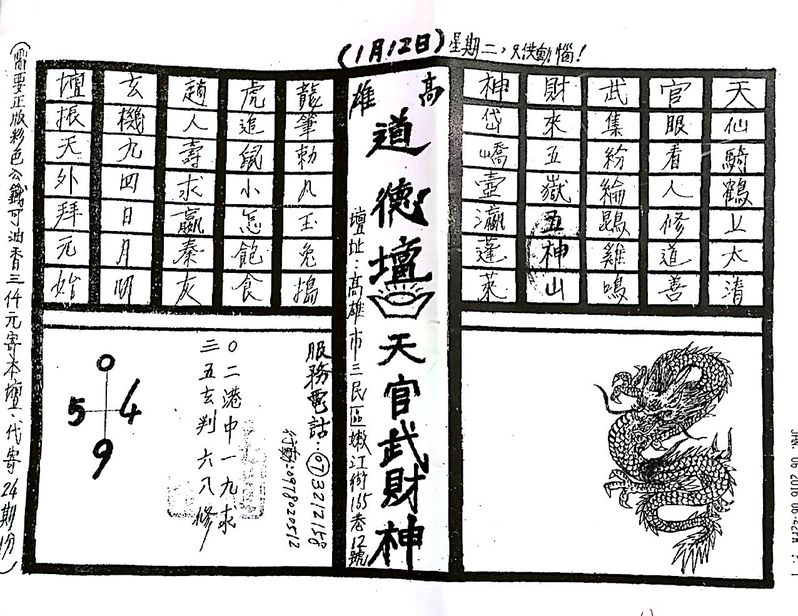 (1月12日)星期二,只供動惱!
天仙騎鶴上太清
官眼看人修道善
武集紛綸鵾雞鳴
財來五嶽五神山
神岱嶠壺瀛蓬萊
高雄
道德壇
天官武財神
壇址:高雄市三民區嫩江街165巷12號
龍筆勅八玉兔搗
虎追鼠小怎飽食
趙人壽求嬴秦灰
玄機九四日月明
壇振天外拜元始
服務電話:(07)3212158
行動:0918020512
0二港中一九求
三五玄判六八修
0
5 4
9
(需要正版彩色公籤可油香三仟元寄本壇、代寄24期份)
JAN. 06 2016 08:42AM P. 1